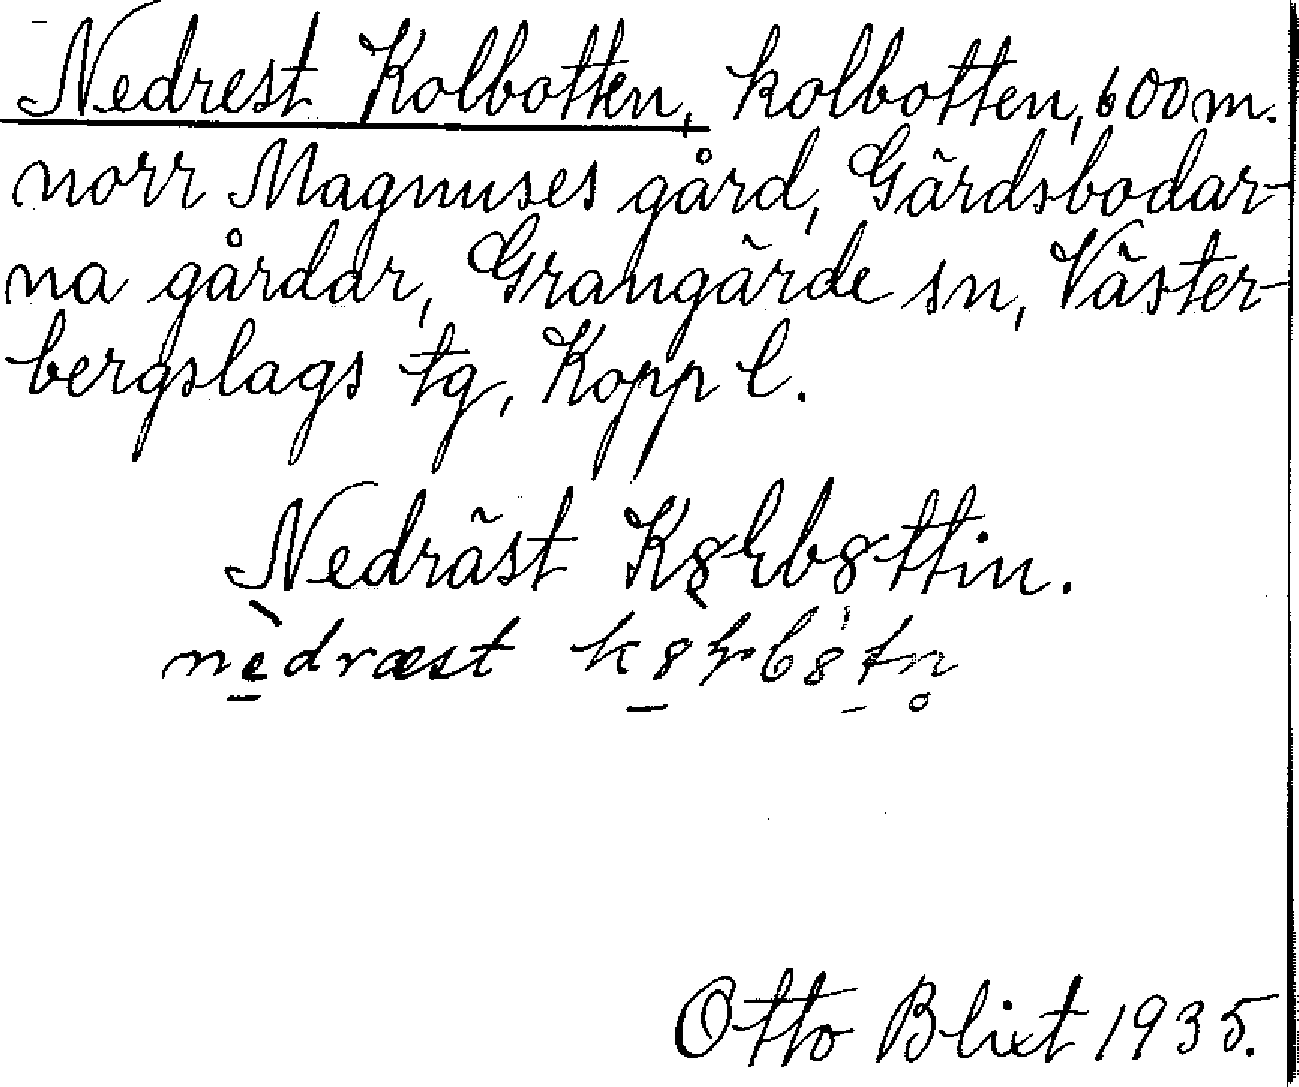 Nedrest Kolbotten, kolbotten, 600 m.
norr Magnuses gård, Gärdsbodar-
na gårdar, Grangärde sn, Väster-
bergslags tg, Kopp l.
Nedräst
nèdræst
Otto Blixt 1935.